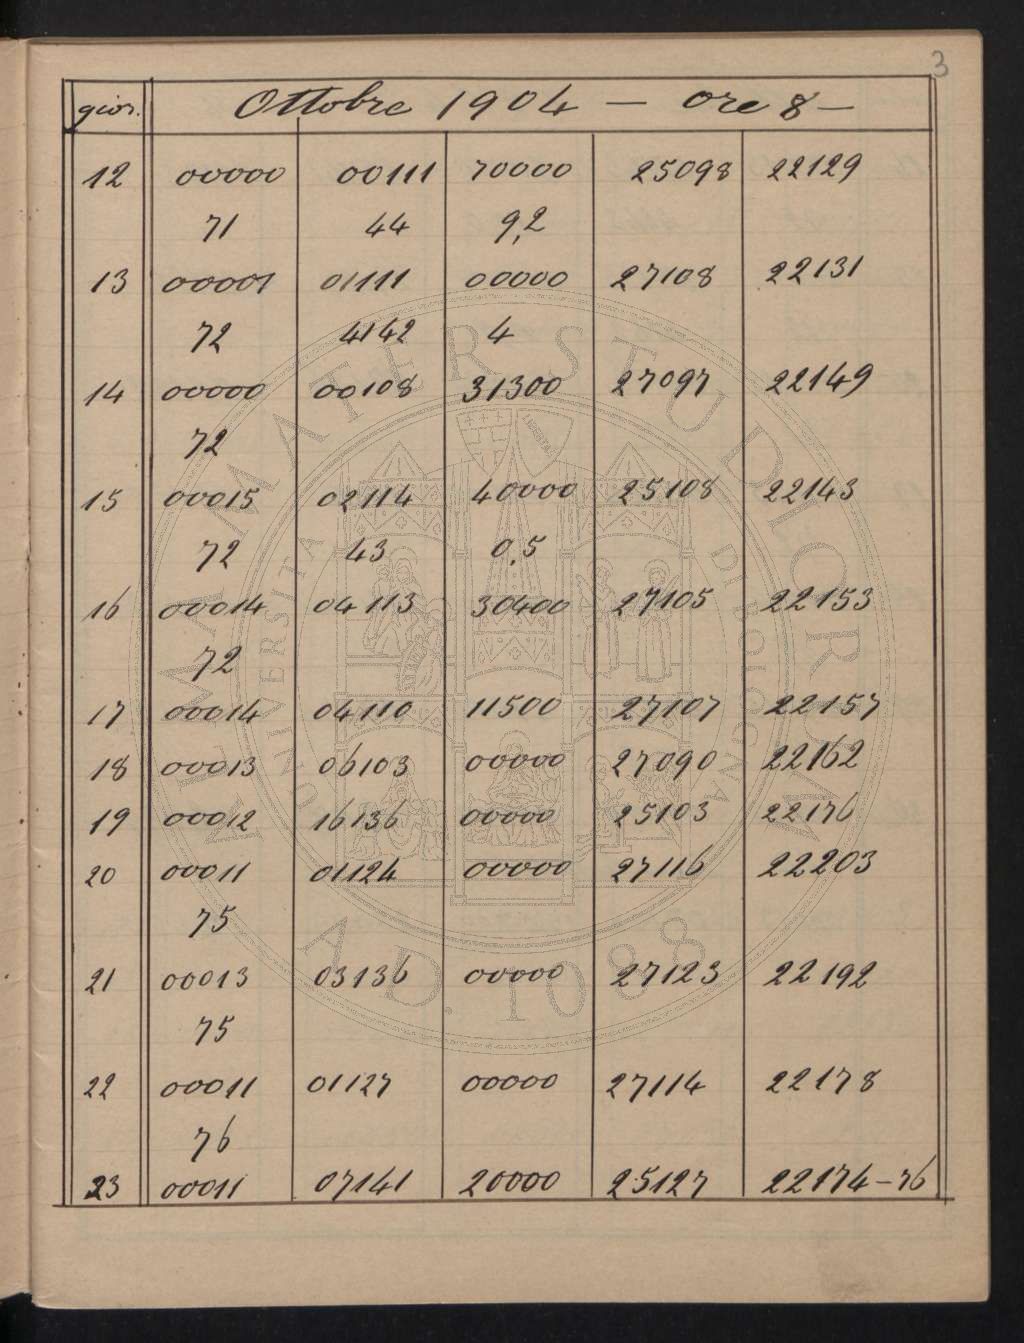 3
gior. Ottobre 1904 — ore 8 —
12 00000 00111 70000 25098 22129
71 44 9,2
13 00001 01111 00000 27108 22131
72 4142 4
14 00000 00108 31300 27097 22149
72
15 00015 02114 40000 25108 22143
72 43 0,5
16 00014 04113 30400 27105 22153
72
17 00014 04110 11500 27107 22157
18 00013 06103 00000 27090 22162
19 00012 16136 00000 25103 22176
20 00011 01124 00000 27116 22203
75
21 00013 03136 00000 27123 22192
75
22 00011 01127 00000 27114 22178
76
23 00011 07141 20000 25127 22174-76
ALMA MATER STUDIORUM
UNIVERSITA DI BOLOGNA
LIBERTAS
A.D. 1088